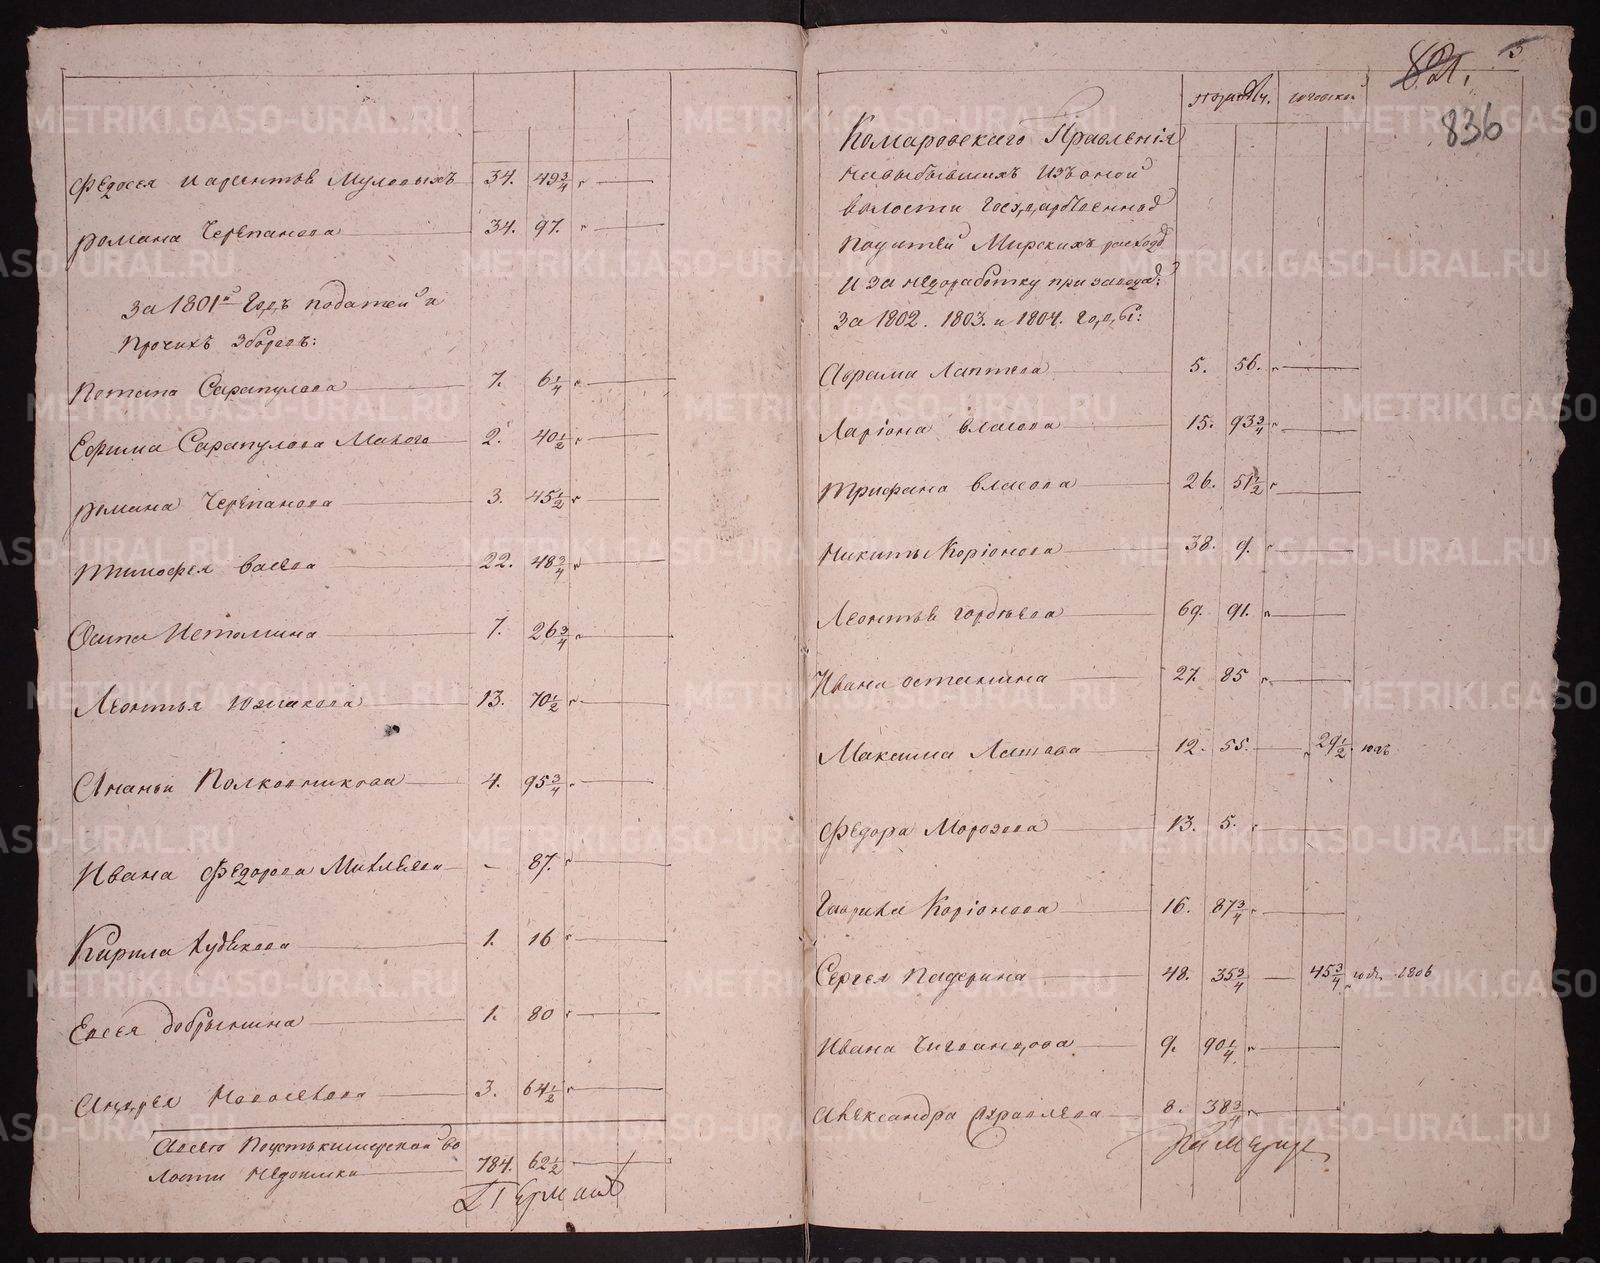 Федосея и Арентьв Муловыхъ 34. 49 3/4
Романа Черепанова 34. 97.
За 1801й Годъ податей и
прочихъ Зборовъ:
Потапа Сарапулова 7. 6 1/4
Ефима Сарапулова Малого 2. 40 1/2
Романа Черепанова 3. 45 1/2
Тимофея Васева 22. 48 3/4
Осипа Истомина 7. 26 3/4
Леонтья Южакова 13. 70 1/2
Ананьи Полковникова 4. 95 3/4
Ивана Федорова Михлѣева - 87.
Кирила Худѣкова 1. 16
Евсея Добрынина 1. 80
Андрея Новосѣлова 3. 64 1/2
А всего по Устькишерской во
лости недоимки 784. 62 1/2
821. 5
836
Комаровского Правленія
Невыбывшихъ Изъ оной
Волости Государственной
Податей Мирскихъ расходов
И за недоработку при завода:
За 1802. 1803. и 1804. Годы:
Абрама Лаптева 5. 56.
Ларіона Власова 15. 93 3/4
Трифана Власова 26. 51 1/2
Никиты Коріонова 38. 9.
Леонтья Гордѣева 69. 91.
Ивана Останина 27. 85
Максима Латова 12. 55. 29 1/2
Федора Морозова 13. 5.
Гаврила Коріонова 16. 87 3/4
Сергея Падерина 48. 35 3/4 45 3/4 1806
Ивана Чигвандова 9. 90 1/4
Александра Журавлева 8. 38 3/4
METRIKI.GASO-URAL.RU